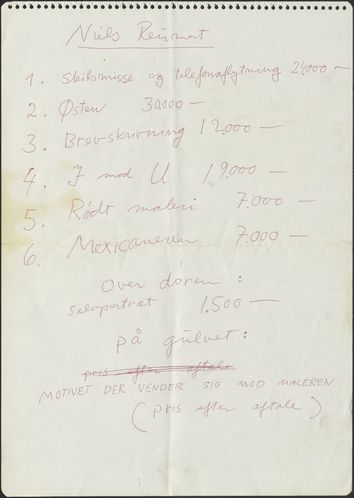 Niels Reumert
1. Skilsmisse og telefonaflytning 24.000 —
2. Østen 30.000 —
3. Brevskrivning 12.000 —
4. I mod U 19.000 —
5. Rødt maleri 7.000 —
6. Mexicaneren 7.000 —
Over døren :
selvportræt 1.500 —
på gulvet :
pris efter aftale
MOTIVET DER VENDER SIG MOD MALEREN
(pris efter aftale)